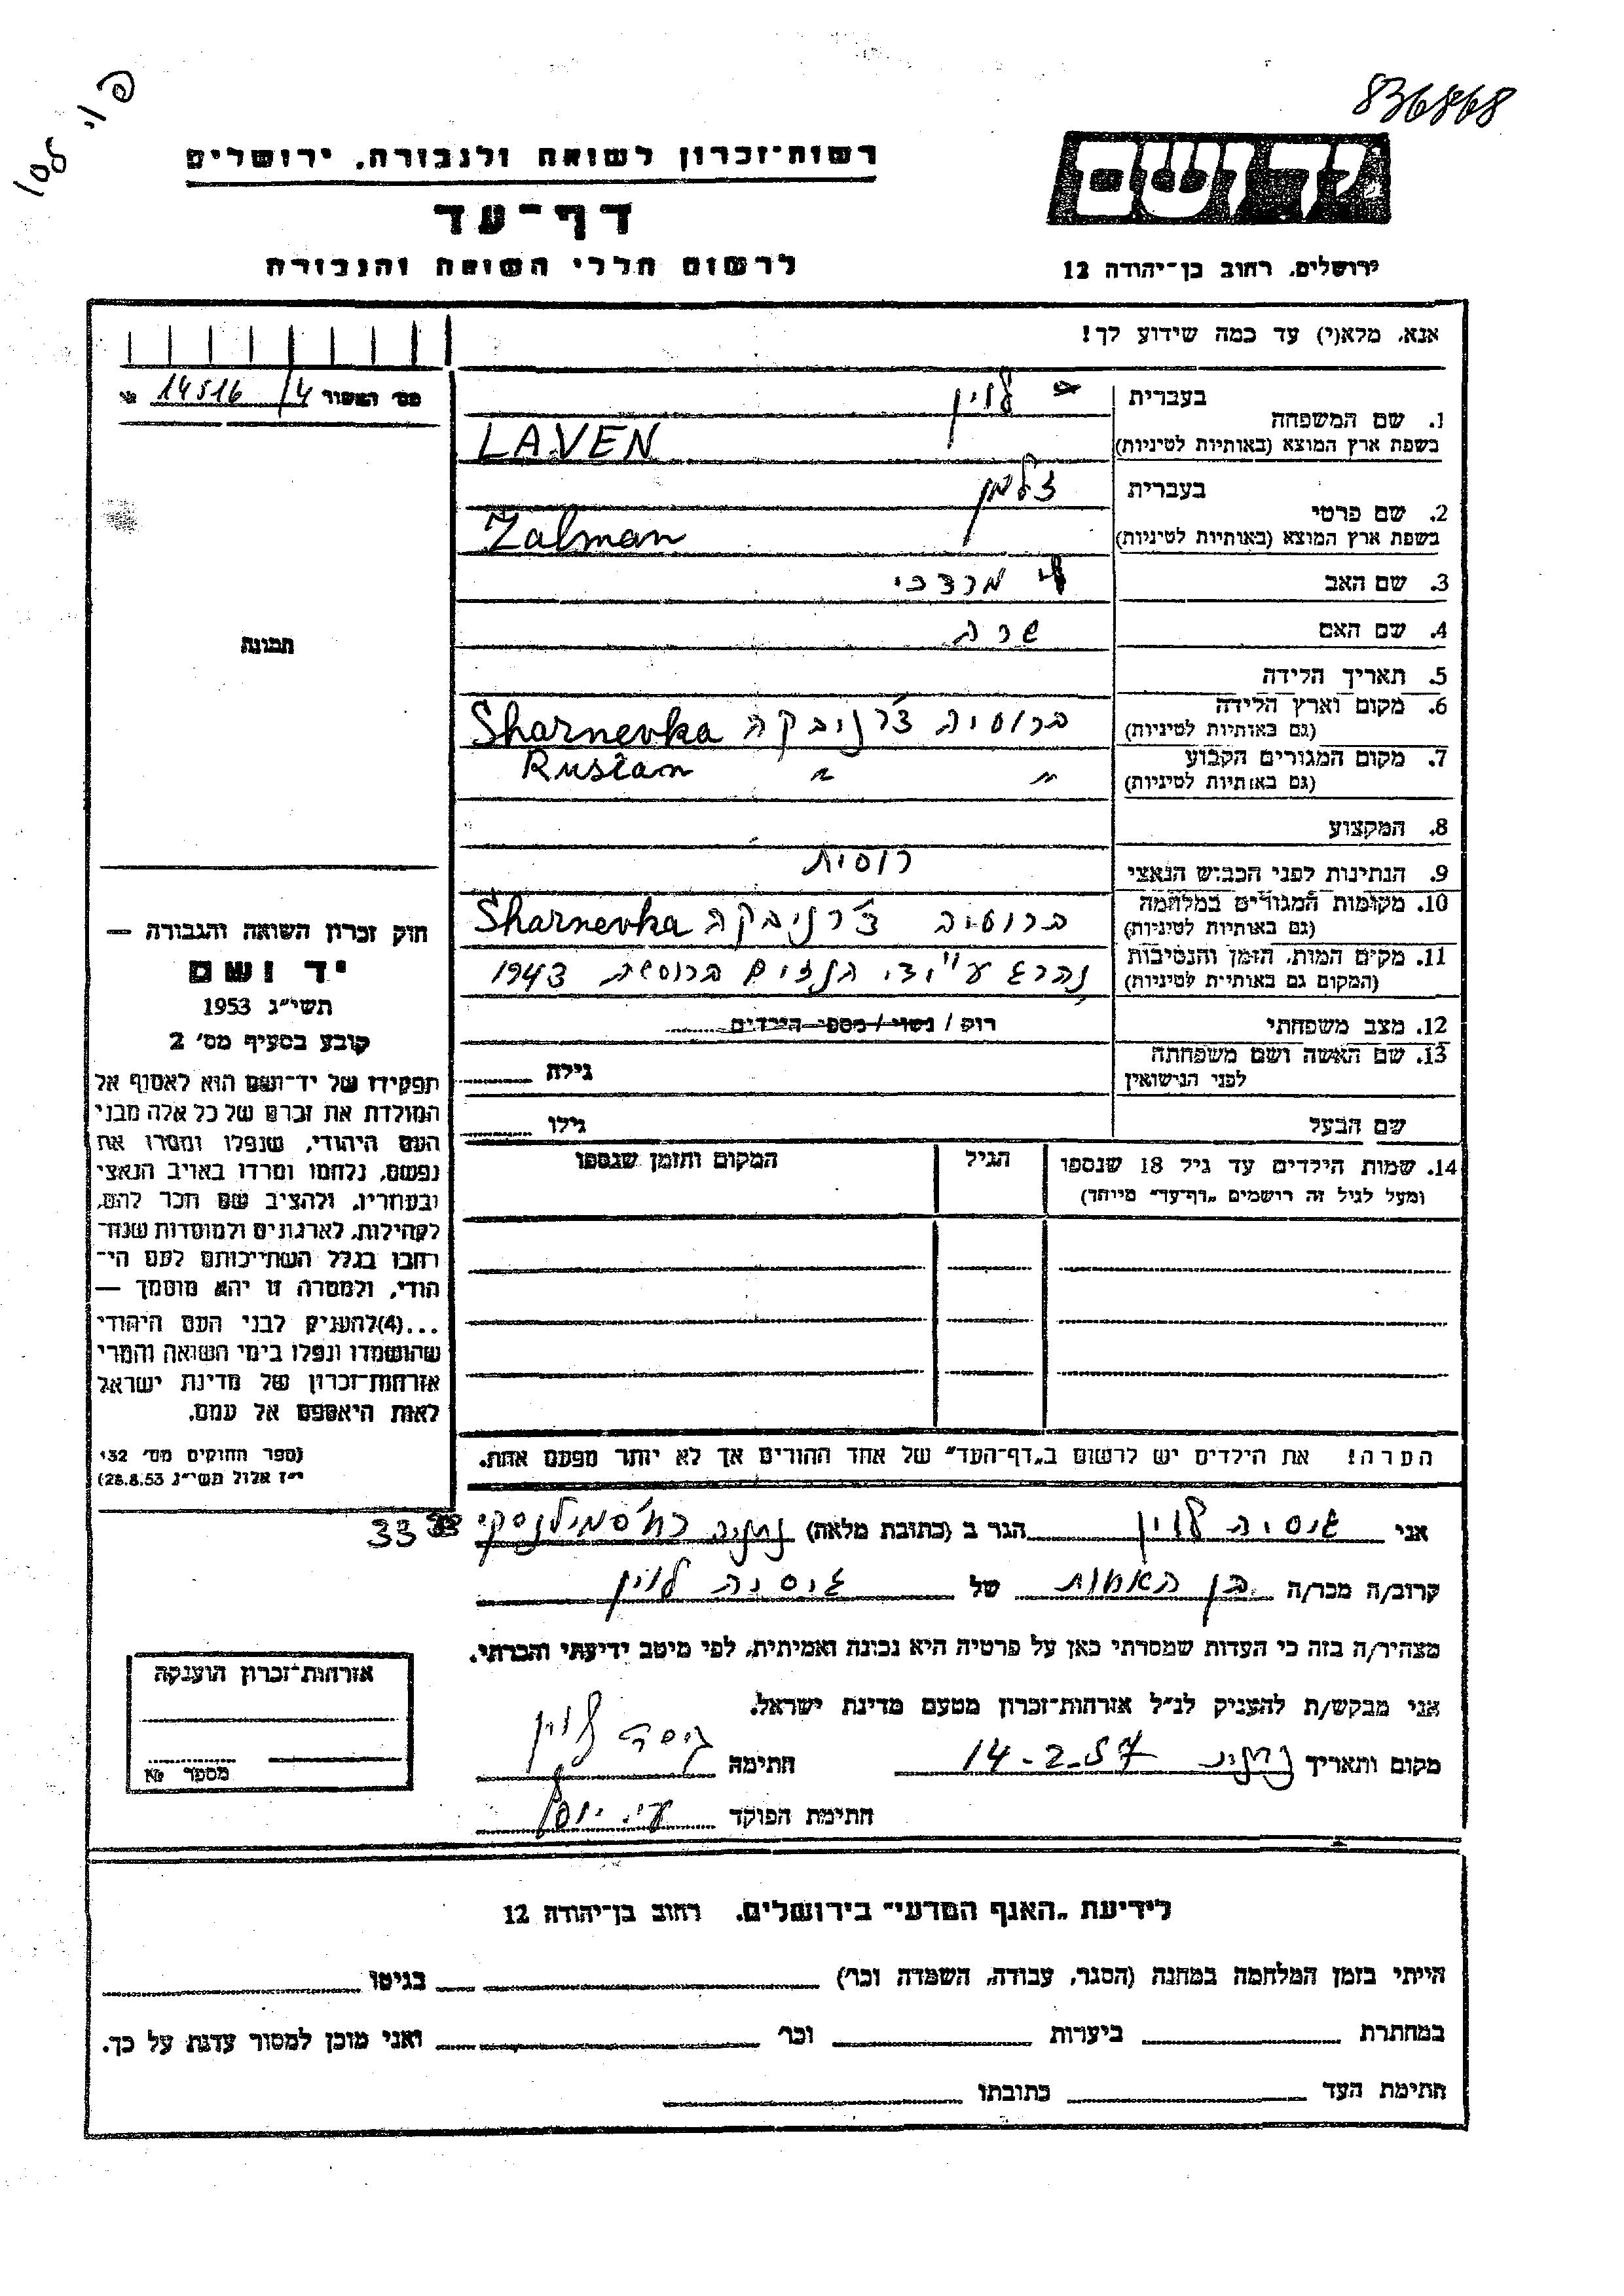 836868
רשות־זכרון לשואה ולגבורה, ירושלים
דף־עד
לרשום חללי השואה והגבורה
יד ושם
ירושלים, רחוב בן־יהודה 12
אנא, מלא(י) עד כמה שידוע לך!
מס׳ האשור 14516/4
1. שם המשפחה בעברית לוין
בשפת ארץ המוצא (באותיות לטיניות) LAVEN
2. שם פרטי בעברית זלמן
בשפת ארץ המוצא (באותיות לטיניות) Zalman
3. שם האב מרדכי
4. שם האם שרה
תמונה
5. תאריך הלידה
6. מקום וארץ הלידה (גם באותיות לטיניות) ברוסיה צ׳רניבקה Sharnevka
7. מקום המגורים הקבוע (גם באותיות לטיניות) " " Rusian
8. המקצוע
9. הנתינות לפני הכבוש הנאצי רוסית
10. מקומות המגורים במלחמה (גם באותיות לטיניות) ברוסיה צ׳רניבקה Sharnevka
11. מקום המות, הזמן והנסיבות (המקום גם באותיות לטיניות) נהרג ע"י הנצים ברוסיה 1943
12. מצב משפחתי רוק / נשוי / מספר הילדים
13. שם האשה ושם משפחתה לפני הנישואין גילה
שם הבעל גילו
14. שמות הילדים עד גיל 18 שנספו הגיל המקום והזמן שנספו
(ומעל לגיל זה רושמים „דף־עד״ מיוחד)
הערה! את הילדים יש לרשום ב„דף־העד״ של אחד ההורים אך לא יותר מפעם אחת.
חוק זכרון השואה והגבורה —
יד ושם
תשי״ג 1953
קובע בסעיף מס׳ 2
תפקידו של יד־ושם הוא לאסוף אל
המולדת את זכרם של כל אלה מבני
העם היהודי, שנפלו ומסרו את
נפשם, נלחמו ומרדו באויב הנאצי
ובעוזריו, ולהציב שם וזכר להם,
לקהילות, לארגונים ולמוסדות שנח־
רבו בגלל השתייכותם לעם הי־
הודי, ולמטרה זו יהא מוסמך —
...(4) להעניק לבני העם היהודי
שהושמדו ונפלו בימי השואה והמרי
אזרחות־זכרון של מדינת ישראל
לאות היאספם אל עמם.
(ספר החוקים מס׳ 132
י״ז אלול תשי״ג 28.8.53)
אני גיסיה לוין הגר ב (כתובת מלאה) נתניה רח׳ סמילנסקי 33
קרוב/ה מכר/ה בן האחות של גיסיה לוין
מצהיר/ה בזה כי העדות שמסרתי כאן על פרטיה היא נכונה ואמיתית, לפי מיטב ידיעתי והכרתי.
אני מבקש/ת להעניק לנ״ל אזרחות־זכרון מטעם מדינת ישראל.
מקום ותאריך נתניה 14-2-57 חתימה לוין
חתימת הפוקד
אזרחות־זכרון הוענקה
מספר №
לידיעת „האגף המדעי״ בירושלים, רחוב בן־יהודה 12
הייתי בזמן המלחמה במחנה (הסגר, עבודה, השמדה וכו׳) בגיטו
במחתרת ביערות וכו׳ ואני מוכן למסור עדות על כך.
חתימת העד כתובתו